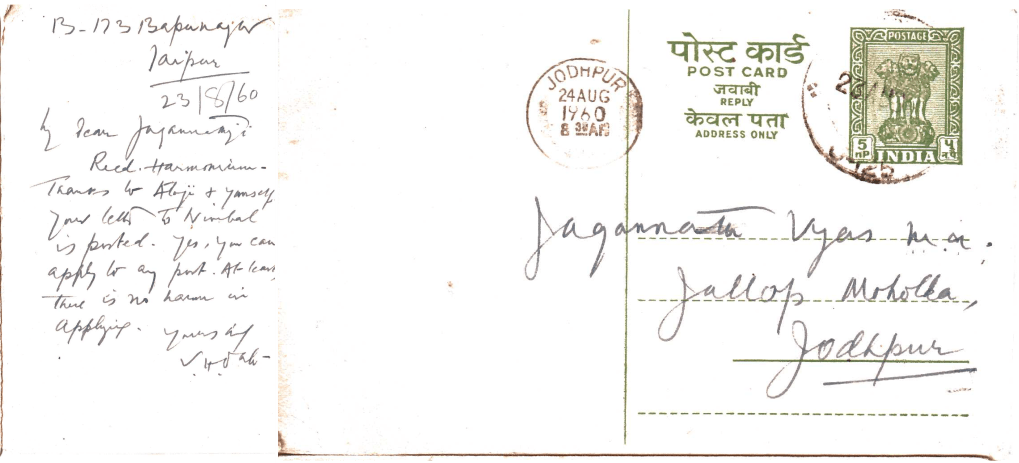 B-173 Bapunagar
Jaipur
23/8/60
My dear Jagannathji
Recd. Harmonium.
Thanks to & yourself
your letter to Nimbal
is posted. Yes, you can
apply to any post. At least
there is no harm in
applying.
yours
JODHPUR
24 AUG
1960
8 30 AM
पोस्ट कार्ड
POST CARD
जवाबी
REPLY
केवल पता
ADDRESS ONLY
POSTAGE
5 nP INDIA ५ न.पै.
Jagannath Vyas M.A.
Jallop Moholla,
Jodhpur